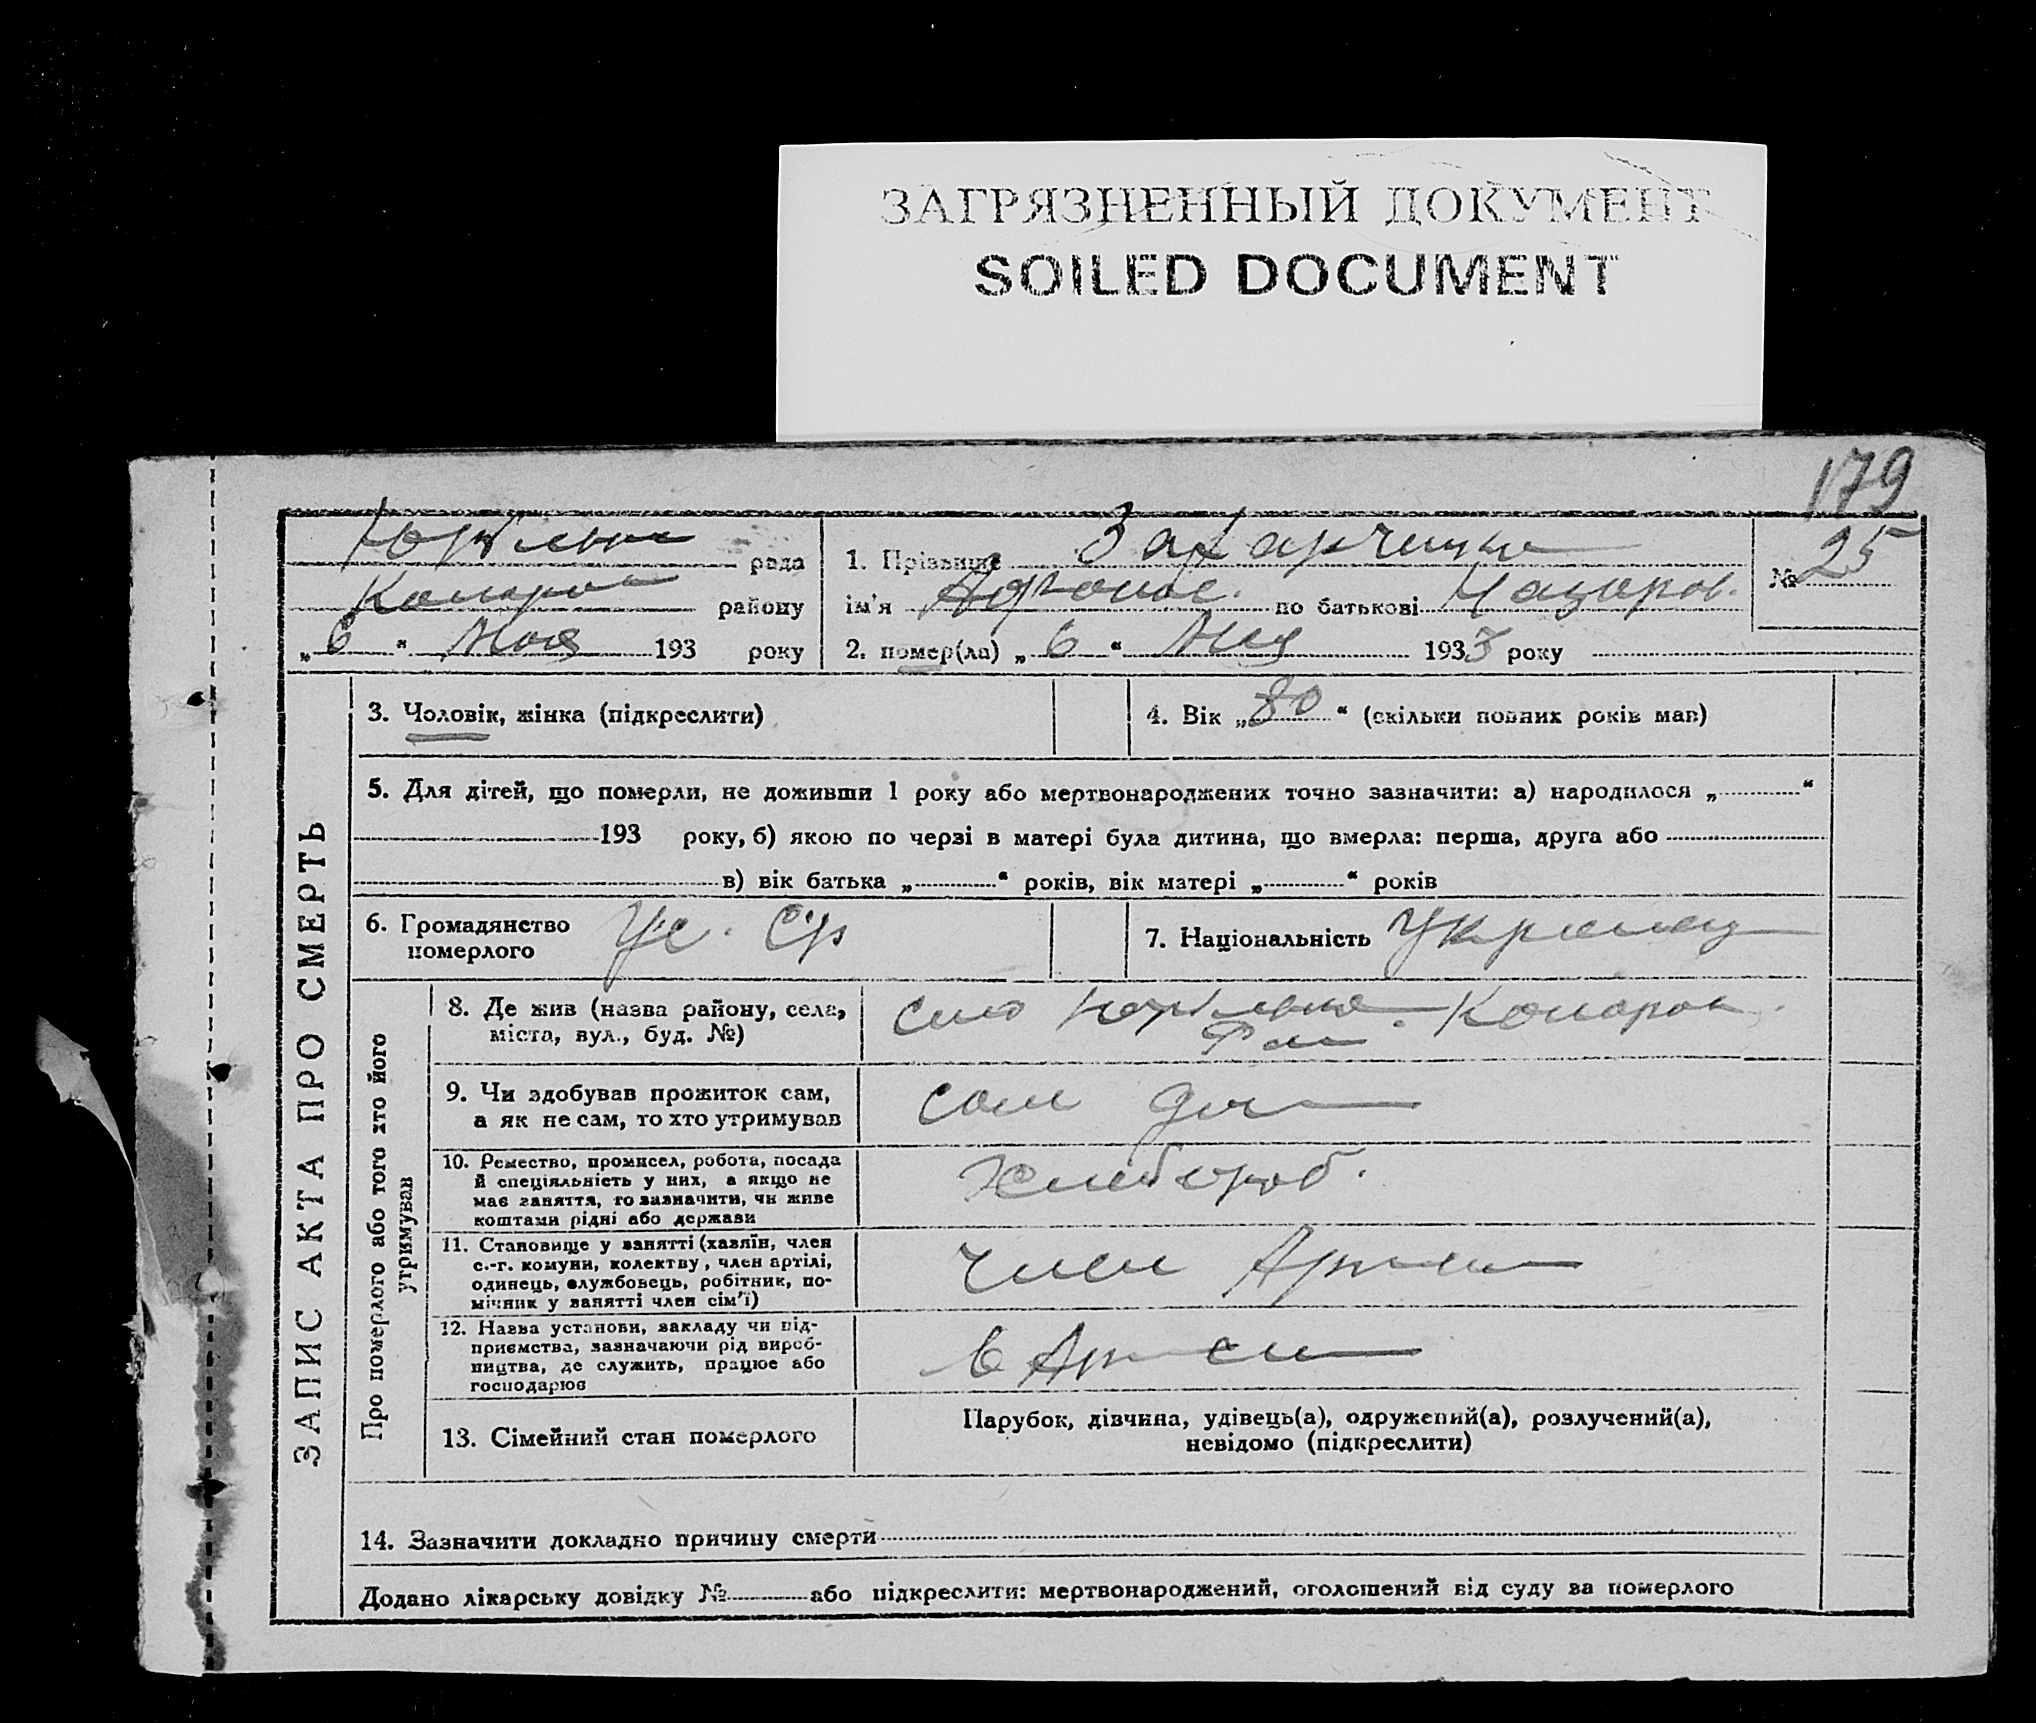 ЗАГРЯЗНЕННЫЙ ДОКУМЕНТ
SOILED DOCUMENT
179
рада
району
„6“ Мая 193 року
1. Прізвище Захарченко
ім'я по батькові
2. помер(ла) „6“ Мая 1933 року
№ 25
ЗАПИС АКТА ПРО СМЕРТЬ
3. Чоловік, жінка (підкреслити)
4. Вік „80“ (скільки повних років мав)
5. Для дітей, що померли, не доживши 1 року або мертвонароджених точно зазначити: а) народилося „ “
193 року, б) якою по черзі в матері була дитина, що вмерла: перша, друга або
в) вік батька „ “ років, вік матері „ “ років
6. Громадянство
померлого
7. Національність Украинец
Про померлого або того хто його
утримував
8. Де жив (назва району, села,
міста, вул., буд. №)
село
9. Чи здобував прожиток сам,
а як не сам, то хто утримував
сам
10. Ремество, промисел, робота, посада
й спеціяльність у них, а якщо не
має заняття, то зазначити, чи живе
коштами рідні або держави
Хлебороб.
11. Становище у занятті (хазяїн, член
с.-г. комуни, колектву, член артілі,
одинець, службовець, робітник, по-
мічник у занятті член сім'ї)
член Артели
12. Назва установи, закладу чи під-
приємства, зазначаючи рід вироб-
ництва, де служить, працює або
господарює
в Артели
13. Сімейний стан померлого
Парубок, дівчина, удівець(а), одружений(а), розлучений(а),
невідомо (підкреслити)
14. Зазначити докладно причину смерти
Додано лікарську довідку № або підкреслити: мертвонароджений, оголошений від суду за померлого